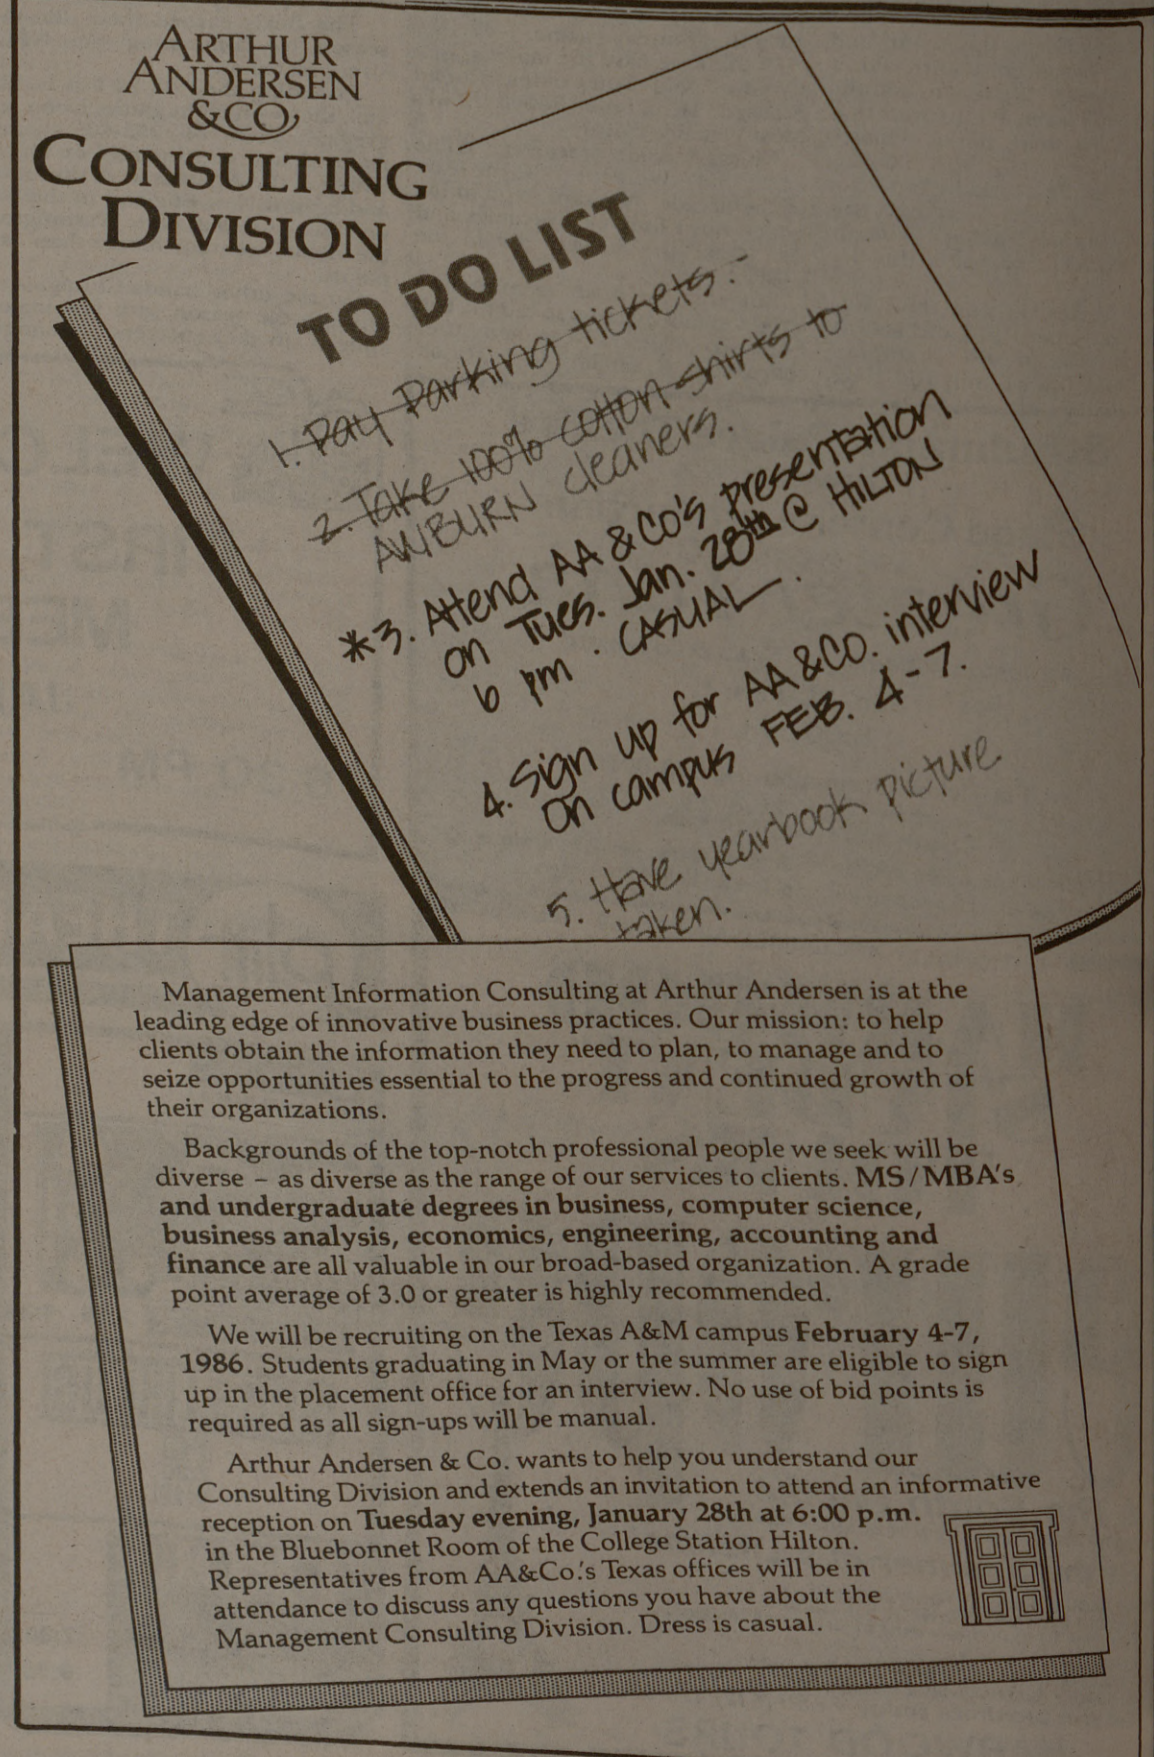 ARTHUR
ANDERSEN
&CO
CONSULTING
DIVISION
TO DO LIST
1. Pay Parking tickets.
2. Take 100% cotton shirts to
AWBURN cleaners.
*3. Attend AA &CO's presentation
on Tues. Jan. 28th @ HILTON
6 pm. CASUAL.
4. Sign up for AA &CO. interview
On campus FEB. 4-7.
5. Have yearbook picture
taken.
Management Information Consulting at Arthur Andersen is at the
leading edge of innovative business practices. Our mission: to help
clients obtain the information they need to plan, to manage and to
seize opportunities essential to the progress and continued growth of
their organizations.
Backgrounds of the top-notch professional people we seek will be
diverse – as diverse as the range of our services to clients. MS/MBA's
and undergraduate degrees in business, computer science,
business analysis, economics, engineering, accounting and
finance are all valuable in our broad-based organization. A grade
point average of 3.0 or greater is highly recommended.
We will be recruiting on the Texas A&M campus February 4-7,
1986. Students graduating in May or the summer are eligible to sign
up in the placement office for an interview. No use of bid points is
required as all sign-ups will be manual.
Arthur Andersen & Co. wants to help you understand our
Consulting Division and extends an invitation to attend an informative
reception on Tuesday evening, January 28th at 6:00 p.m.
in the Bluebonnet Room of the College Station Hilton.
Representatives from AA&Co.'s Texas offices will be in
attendance to discuss any questions you have about the
Management Consulting Division. Dress is casual.